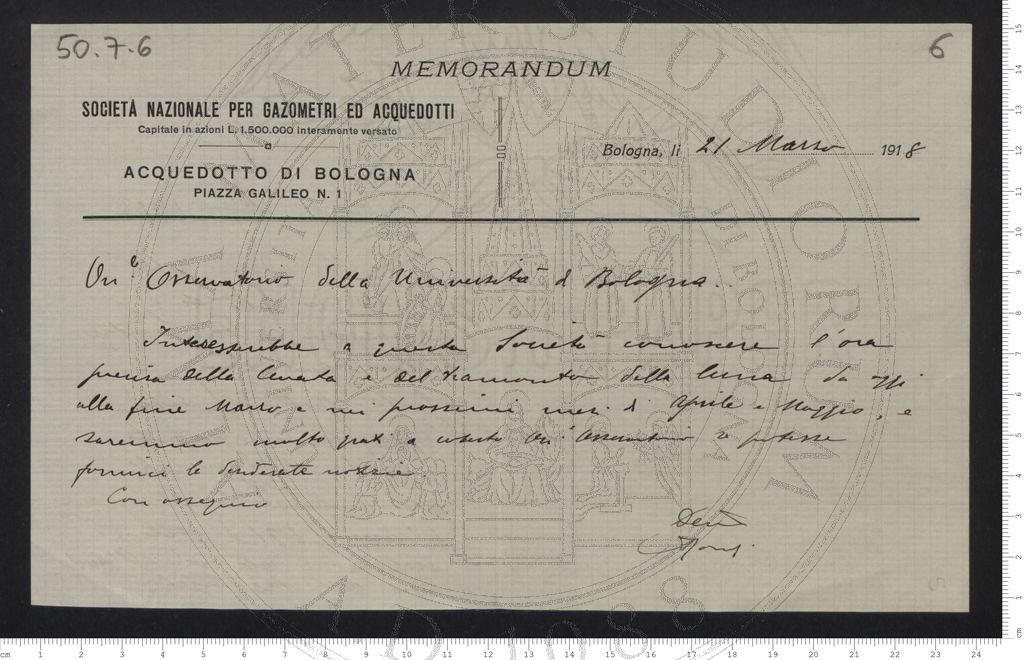 50.7.6
6
MEMORANDUM
SOCIETÀ NAZIONALE PER GAZOMETRI ED ACQUEDOTTI
Capitale in azioni L. 1.500.000 interamente versato
ACQUEDOTTO DI BOLOGNA
PIAZZA GALILEO N. 1
Bologna, li 21 Marzo 1918
On.le Osservatorio della Università di Bologna.
Interesserebbe a questa Società conoscere l'ora
precisa della levata e del tramonto della luna da oggi
alla fine Marzo e nei prossimi mesi di Aprile e Maggio, e
saremmo molto grati a codesto On. Osservatorio se potesse
fornirci le desiderate notizie.
Con ossequio